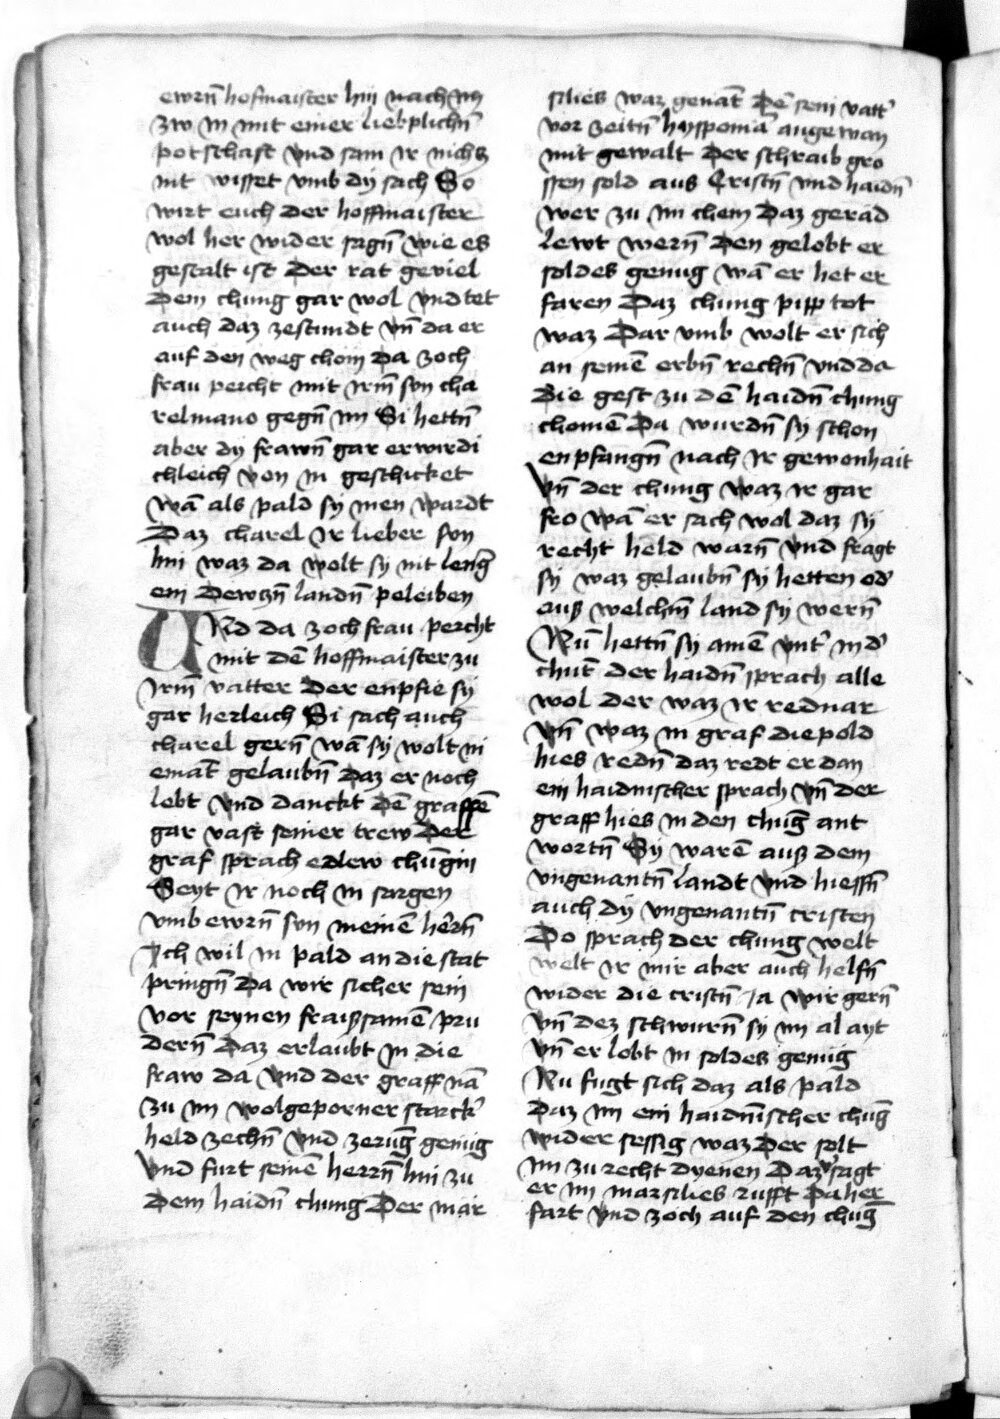 ewrñ hofmaister hin nach im
zw in mit einer lieplichñ
potschaft vnd sam ir nichs
nit wisset vmb dy sach So
wirt euch der hoffmaister
wol her wider sagñ wie es
gestalt ist Der rat geviel
Dem chung gar wol vnd tet
auch daz zestundt vñ da er
auf den weg chom Da zoch
frau percht mit irm̄ sun cha
relmano gegñ im Si hettñ
aber dy frawñ gar erwirdi
chleich von in geschicket
wā als pald sy inen wardt
Daz charel ir lieber sun
hin waz da wolt sy nit leng̃
ein Dewtzñ landñ peleiben
VNd da zoch frau percht
mit dē hoffmaister zu
irm̄ vatter Der enpfie sy
gar herleich Si sach auch
charel gerñ wā sy wolt ni
emāt gelaubñ daz er noch
lebt vnd danckt dē graffē
gar vast seiner trew Der
graf sprach edlew chūgin
Seyt ir noch in sargen
vmb ewrñ sun meinē herñ
Ich wil in pald an die stat
pringñ Da wir sicher sein
vor seynen fraißsamē pru
derñ Daz erlaubt in die
fraw da vnd der graff nā
zu im wolgeporner starck'
held zechñ vnd zerūg genug
vnd furt seinē herrñ hin zu
Dem haidñ chung Der mar
silies waz genāt Dē sein vatt'
vor zeitñ hysponiā angewan
mit gewalt Der schraib gro
ssen sold aus Cristñ vnd haidñ
wer zu im chem Daz gerad
lewt werñ Den gelobt er
soldes genug wā er het er
faren Daz chung pipp tot
waz Dar vmb wolt er sich
an seinē erbñ rechñ vnd da
die gest zu dē haidñ chung
chomē Da wurdñ sy schon
enpfangñ nach ir gewonhait
vñ der chung waz ir gar
fro wā er sach wol daz sy
recht held warñ vnd fragt
sy waz gelaubñ sy hetten od'
auß welchm̄ land sy werñ
Nū hettñ sy ainē vnt' in d'
chūt der haidñ sprach alle
wol der waz ir rednar
vñ waz in graf diepold
hies redñ daz redt er dan
ein haidnischer sprach vñ der
graff hies in den chūg ant
wortñ Sy warē auß dem
vngenantñ landt vnd hiessñ
auch dy vngenantñ cristen
Do sprach der chung welt
welt ir mir aber auch helfñ
wider die cristñ Ja wir gerñ
vñ dez schwurñ sy im al ayt
vñ er lobt in soldes genug
Nu fugt sich daz als pald
Daz im ein haidnischer chūg
wider sessig waz Der solt
im zu recht dyenen Daz v'sagt
er im marsilies rufft Da her
fart vnd zoch auf den chūg